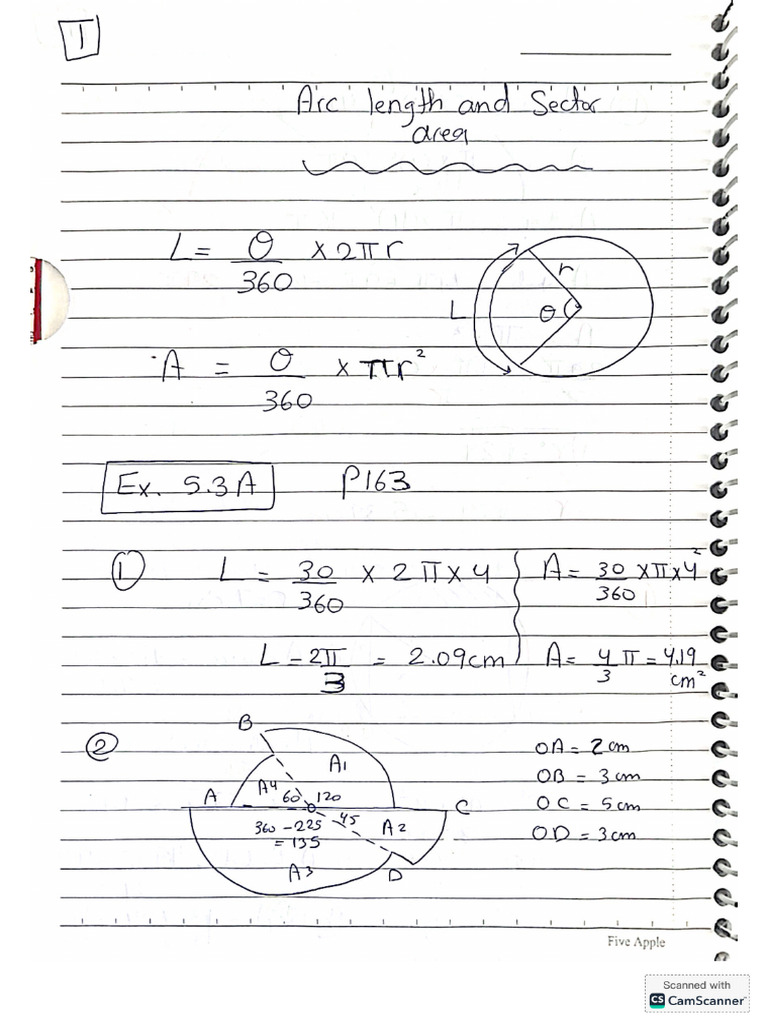 1
Arc length and Sector
area
L = θ/360 × 2πr
r
L
θ
A = θ/360 × πr²
Ex. 5.3A P163
① L = 30/360 × 2π×4 A = 30/360 ×π×4²
L = 2π/3 = 2.09cm A = 4/3 π = 4.19 cm²
②
B
A1
A4
A 60 120 C
360 - 225 45 A2
= 135
A3 D
OA = 2cm
OB = 3cm
OC = 5cm
OD = 3cm
Five Apple
Scanned with
CS CamScanner